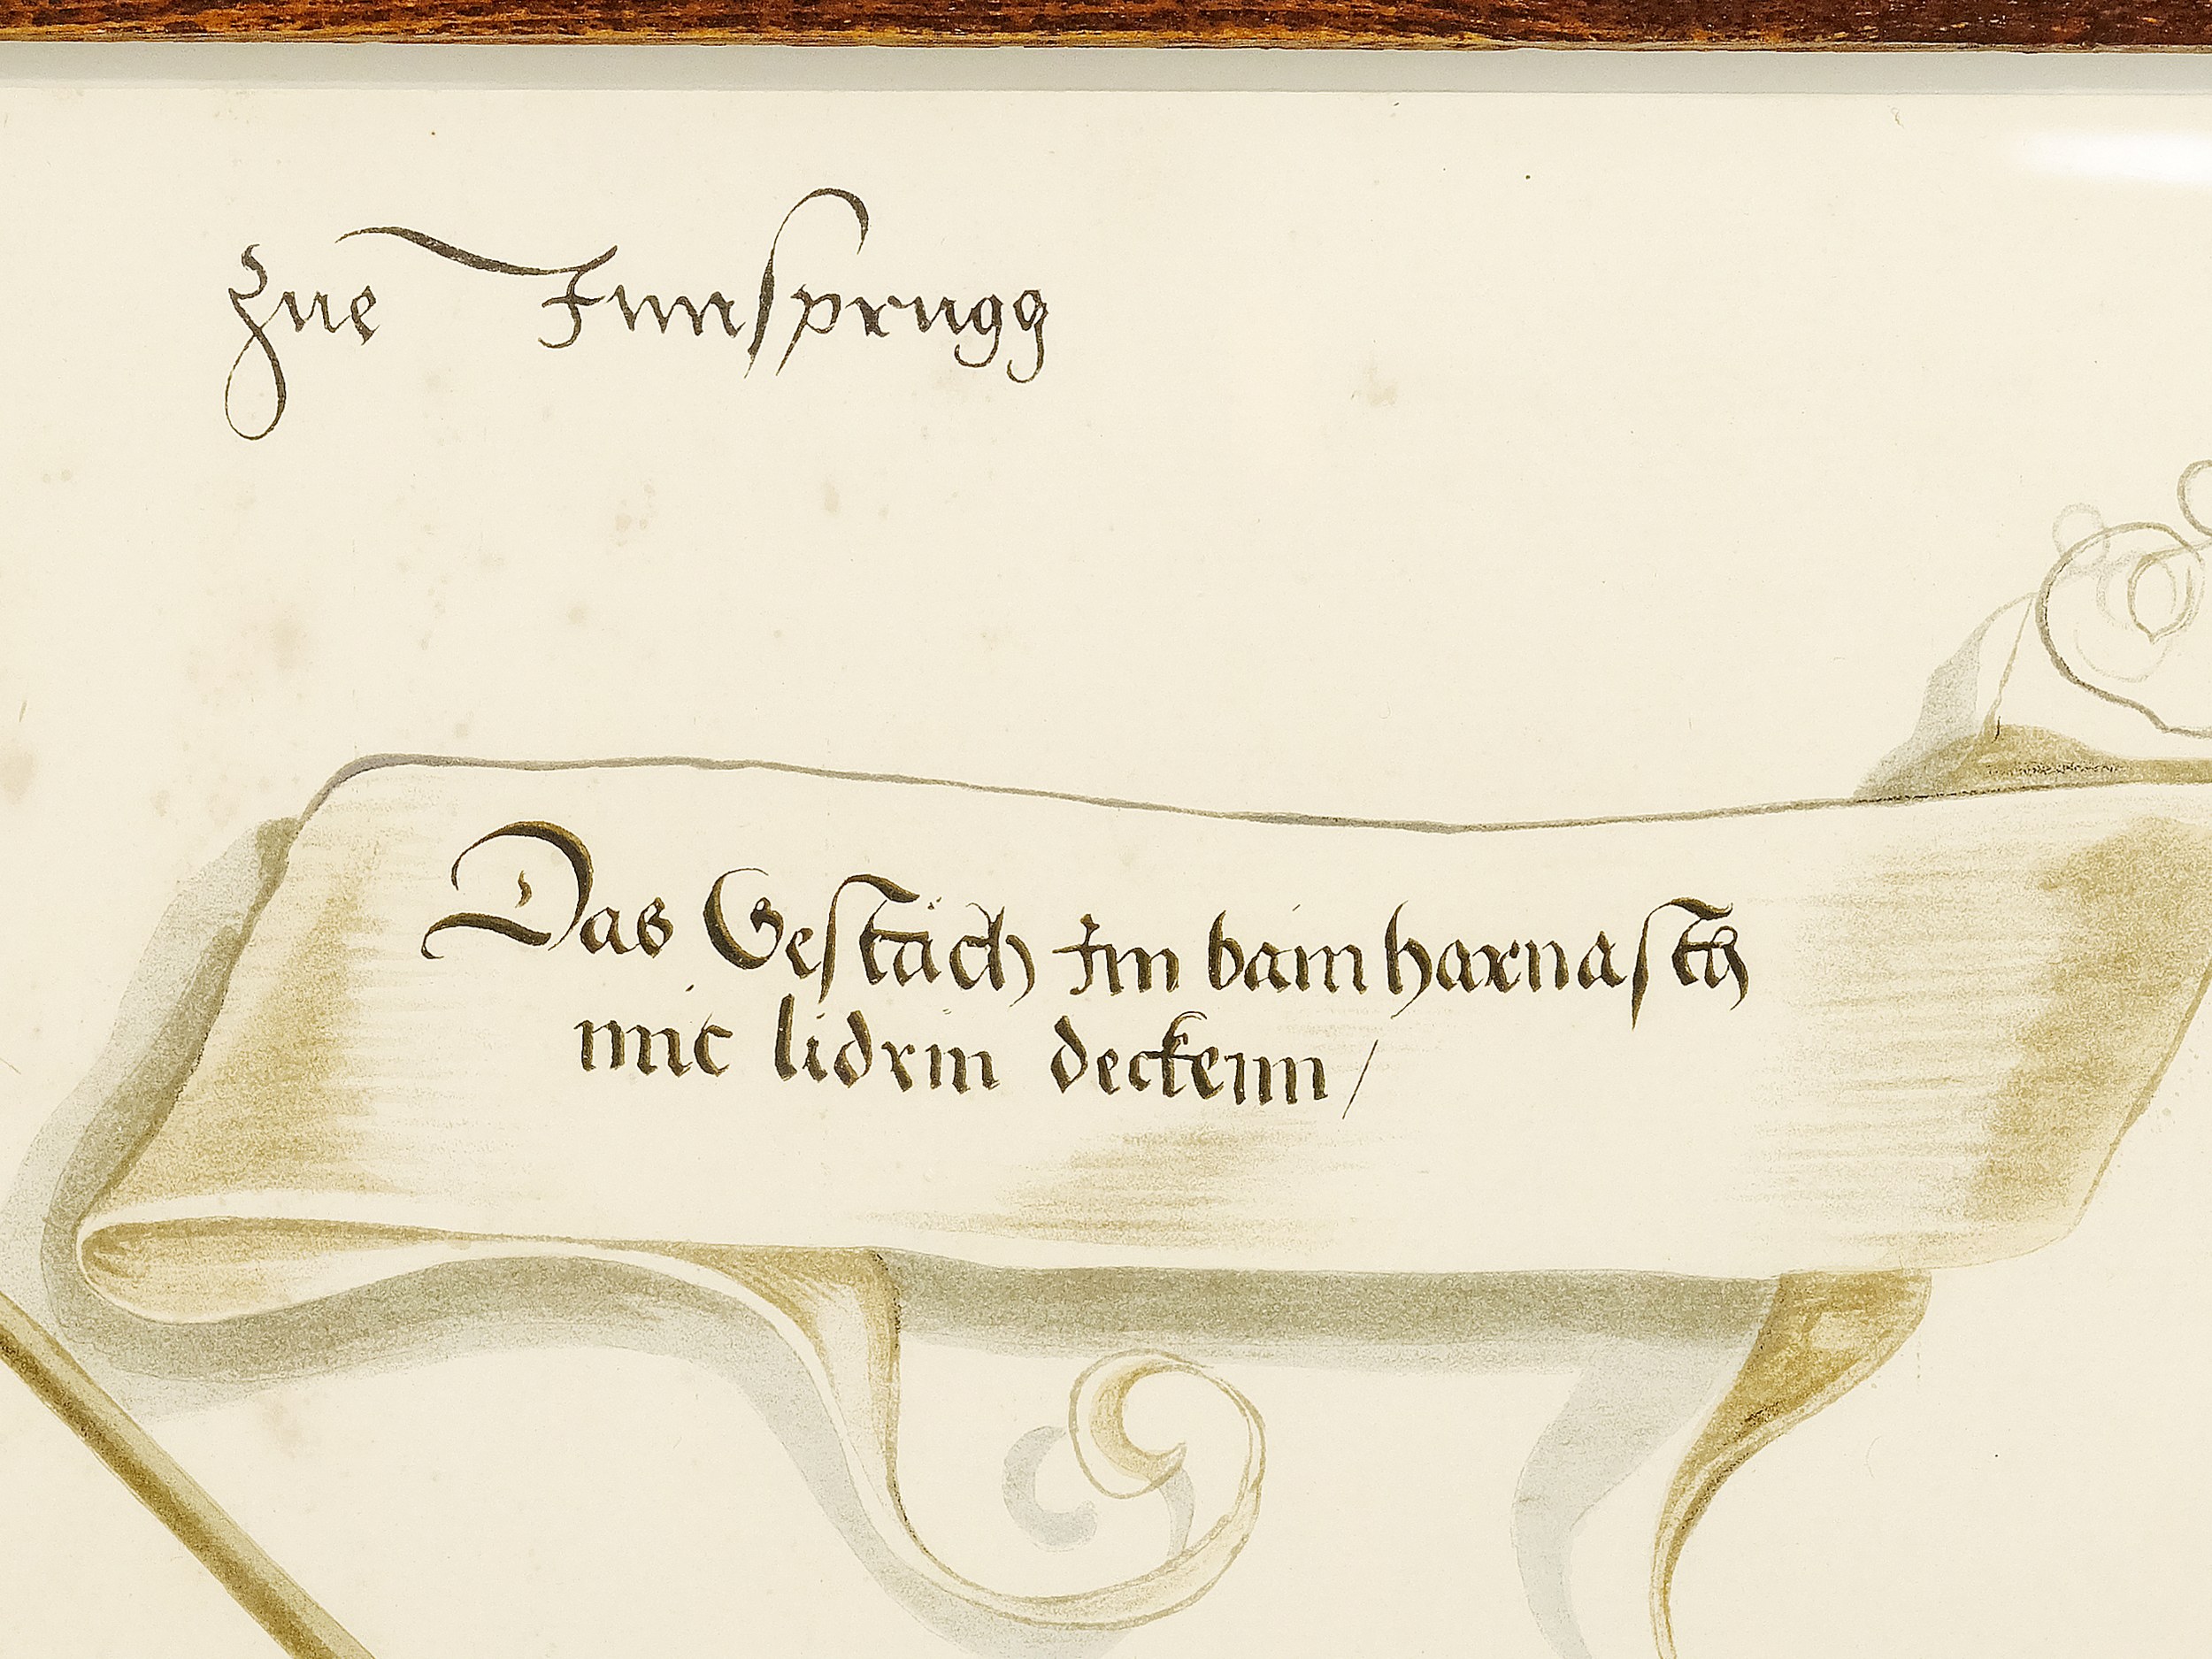 Zue Innsprugg
Das Gestäch Im bainharnasch
mit lidrin deckenn /